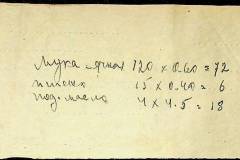 Мука ячная 120 х 0.60 = 72
15 х 0.40 = 6
под. масло 4 х 4.5 = 18